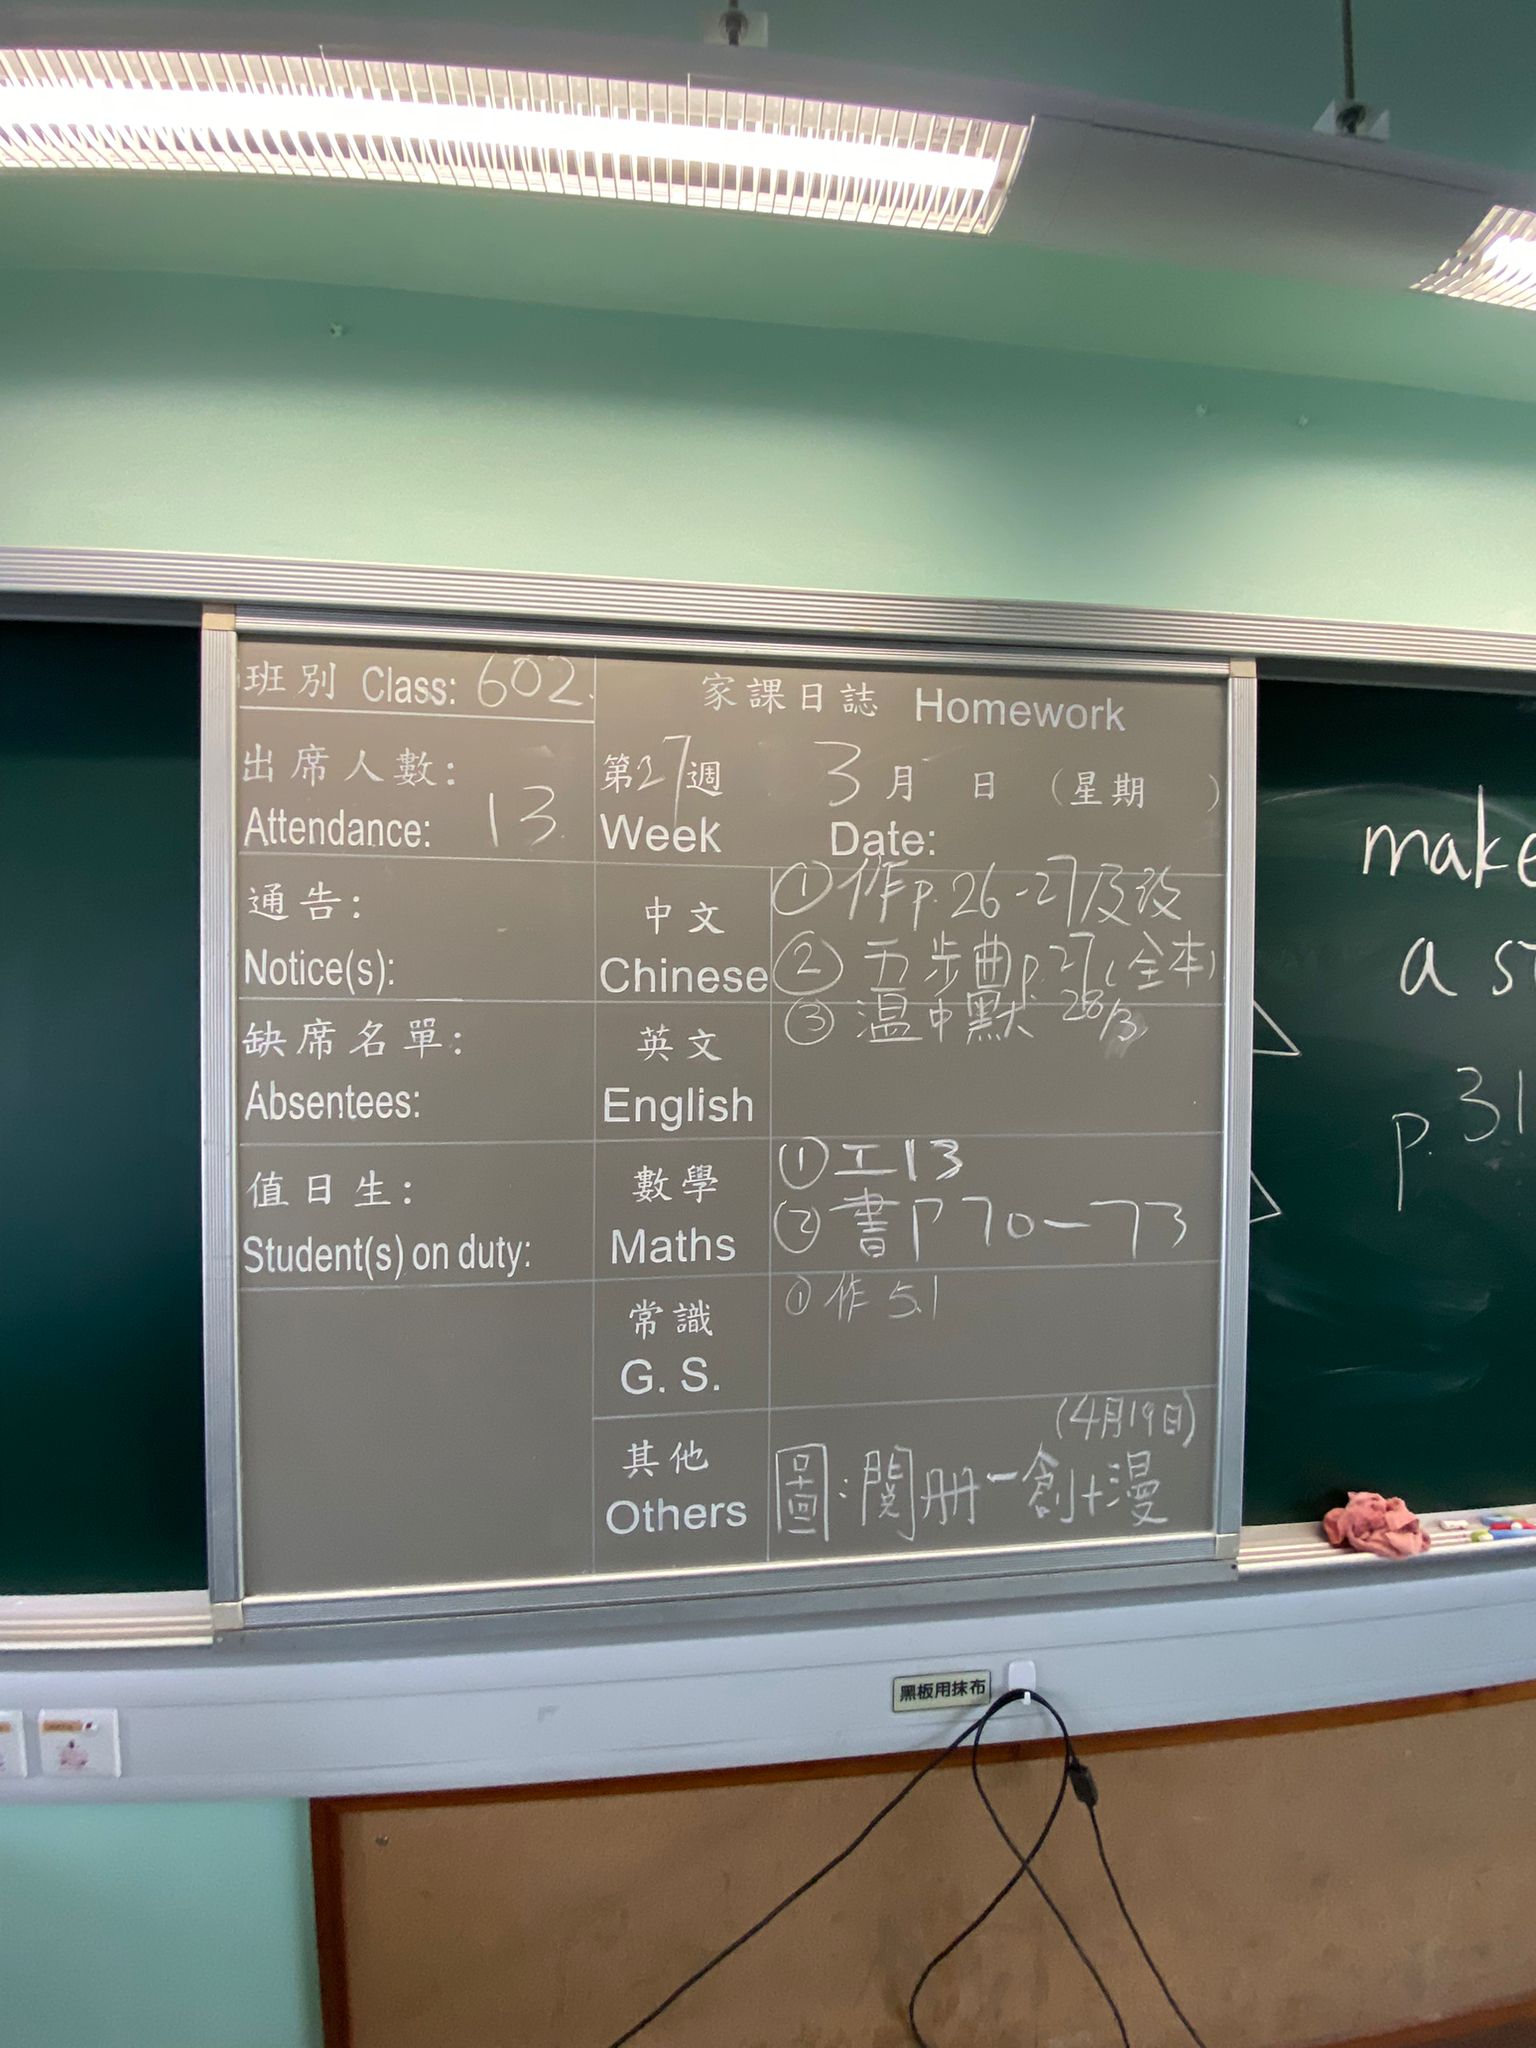 班別 Class: 602.
出席人數:
Attendance: 13.
通告:
Notice(s):
缺席名單:
Absentees:
值日生:
Student(s) on duty:
家課日誌 Homework
第27週 3月 日 (星期 )
Week Date:
中文
Chinese
① 作p.26-27及改
② 五步曲p.27(全本)
③ 溫中默 28/3
英文
English
數學
Maths
① 工13
② 書P70-73
常識
G. S.
① 作5.1
其他
Others
(4月19日)
圖:閱册-創+漫
make
a st
p.31
黑板用抹布